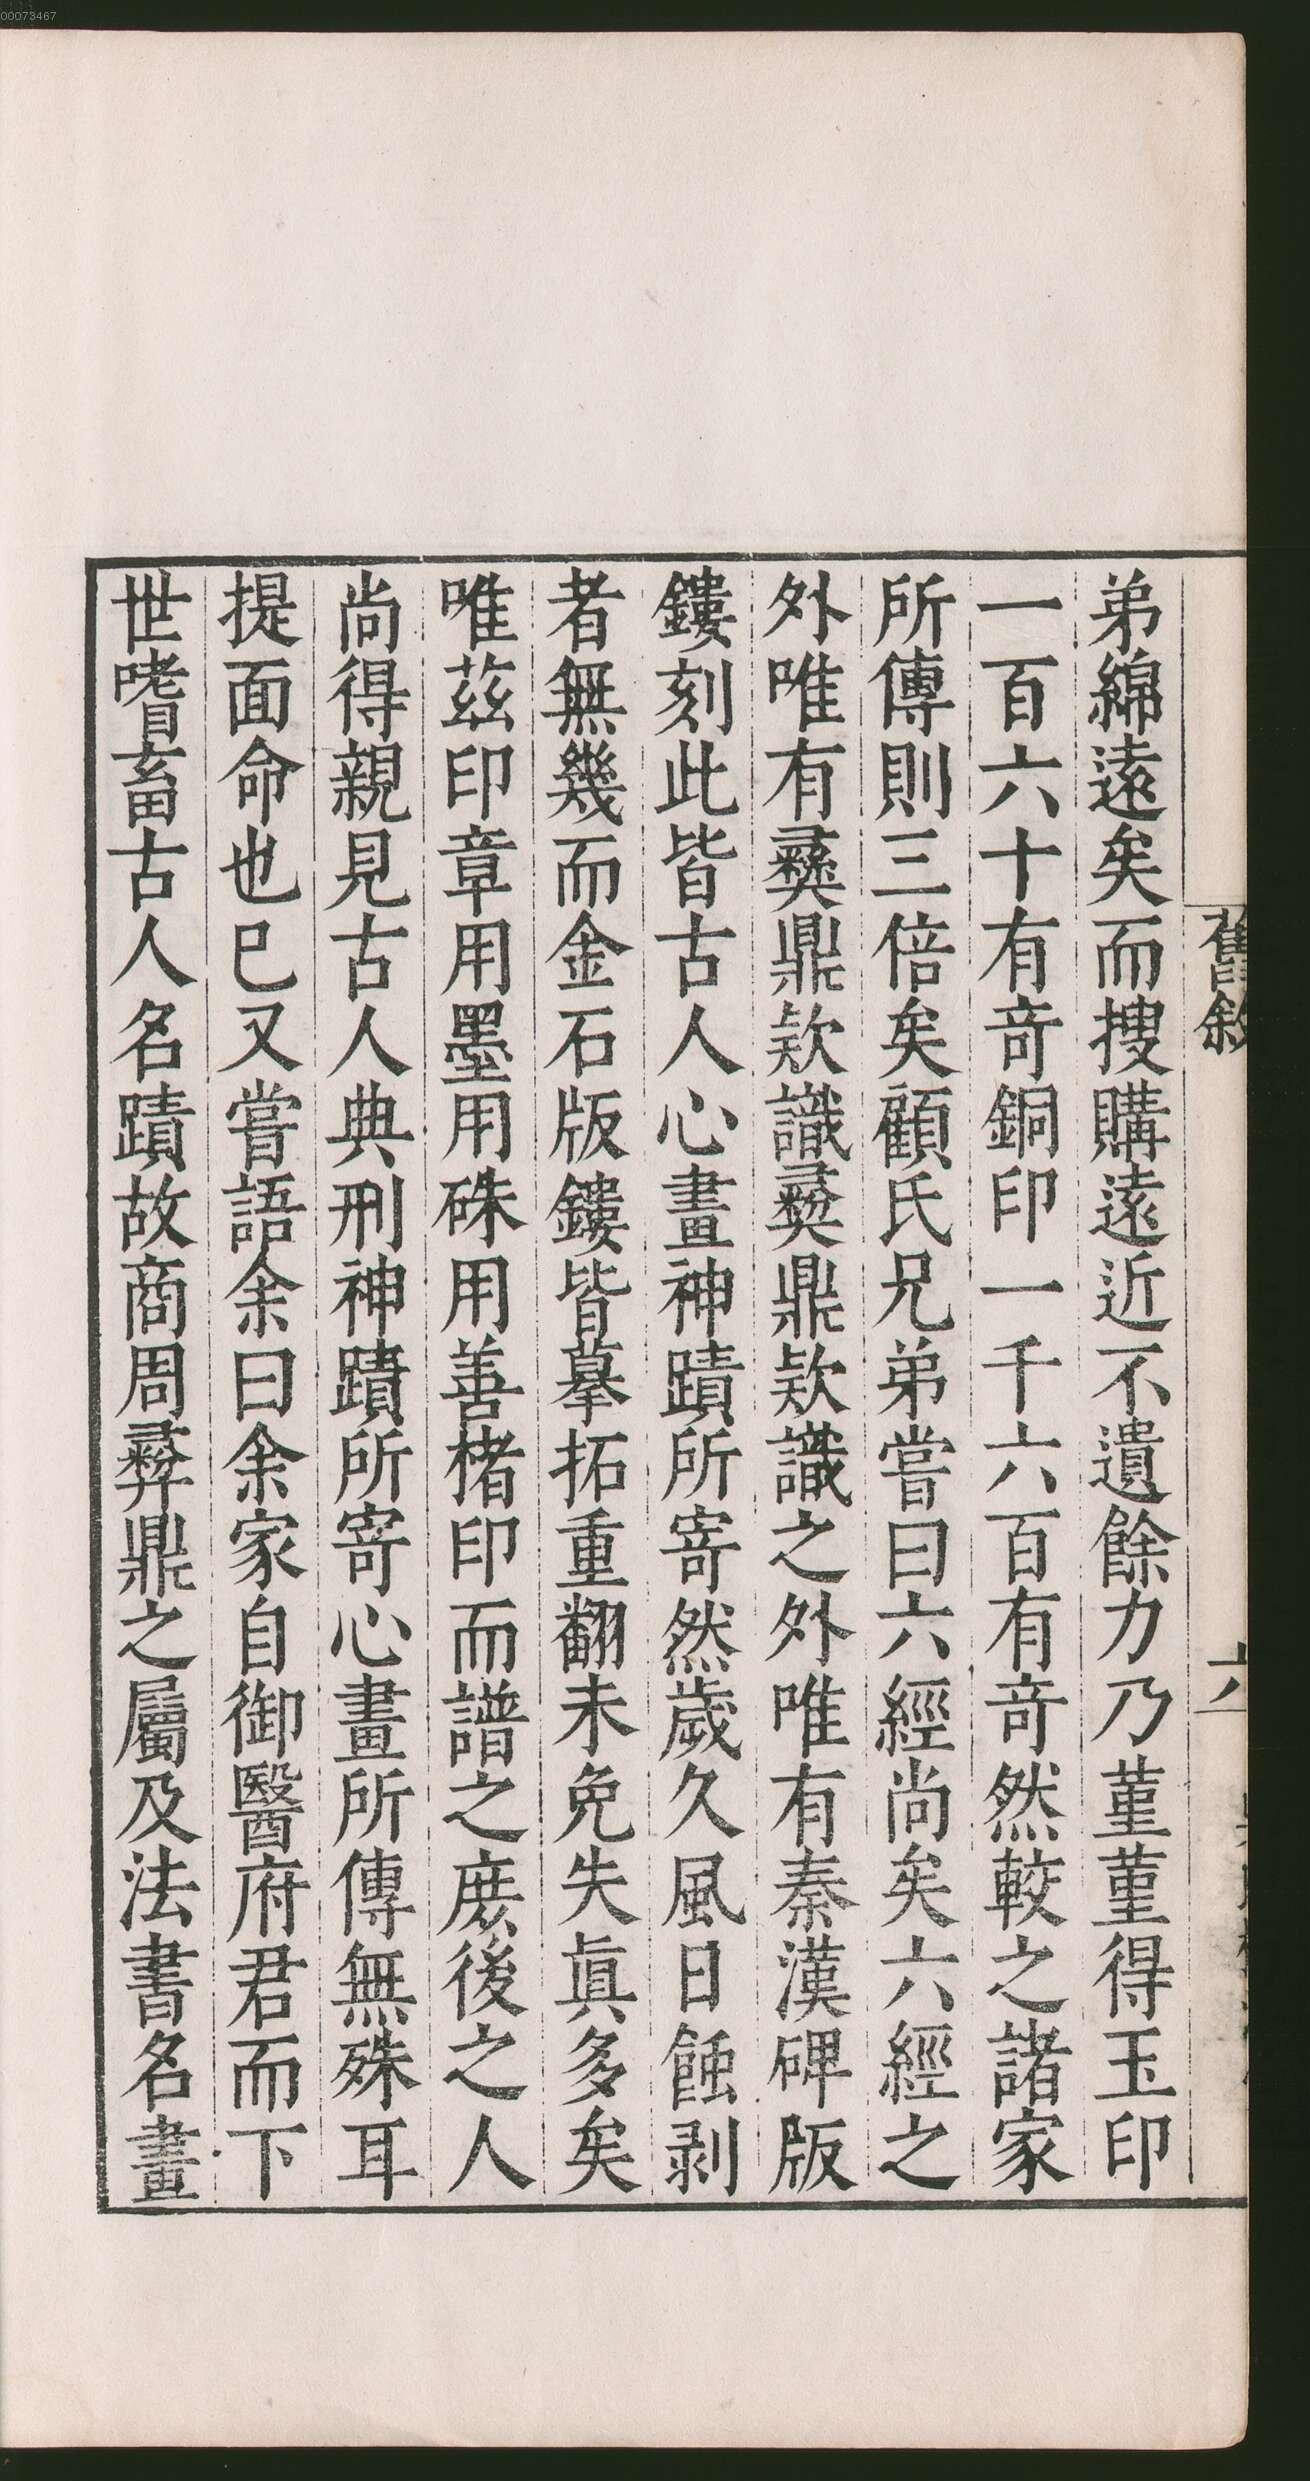 00073467
舊敘
六
弟綿遠矣而搜購遠近不遺餘力乃菫菫得玉印
一百六十有奇銅印一千六百有奇然較之諸家
所傳則三倍矣顧氏兄弟嘗曰六經尚矣六經之
外唯有彝鼎欵識彝鼎欵識之外唯有秦漢碑版
鏤刻此皆古人心畫神蹟所寄然歲久風日蝕剥
者無幾而金石版鏤皆摹拓重翻未免失眞多矣
唯茲印章用墨用硃用善楮印而譜之庶後之人
尚得親見古人典刑神蹟所寄心畫所傳無殊耳
提面命也已又嘗語余曰余家自御醫府君而下
世嗜畜古人名蹟故商周彝鼎之屬及法書名畫